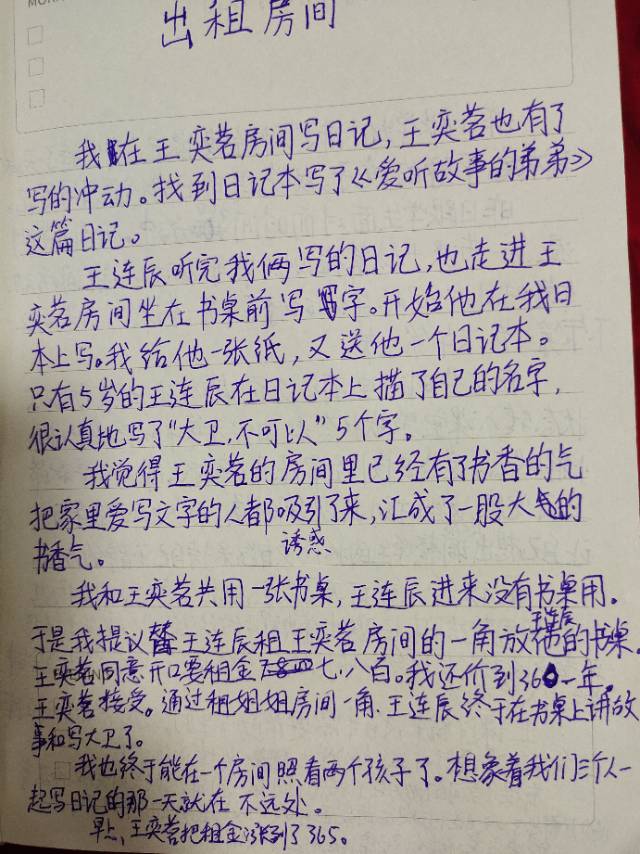 出租房间
我在王奕茗房间写日记，王奕茗也有了
写的冲动。找到日记本写了《爱听故事的弟弟》
这篇日记。
王连辰听完我俩写的日记，也走进王
奕茗房间坐在书桌前写字。开始他在我日
本上写。我给他一张纸，又送他一个日记本。
只有5岁的王连辰在日记本上描了自己的名字，
很认真地写了“大卫，不可以”5个字。
我觉得王奕茗的房间里已经有了书香的气
把家里爱写文字的人都吸引了来，汇成了一股大的
诱惑
书香气。
我和王奕茗共用一张书桌，王连辰进来没有书桌用。
于是我提议替王连辰租王奕茗房间的一角放王连辰的书桌。
王奕茗同意开口要租金七、八百。我还价到360一年。
王奕茗接受。通过租姐姐房间一角，王连辰终于在书桌上讲故
事和写大卫了。
我也终于能在一个房间照看两个孩子了。想象着我们三个人一
起写日记的那一天就在不远处。
早上，王奕茗把租金涨到了365。